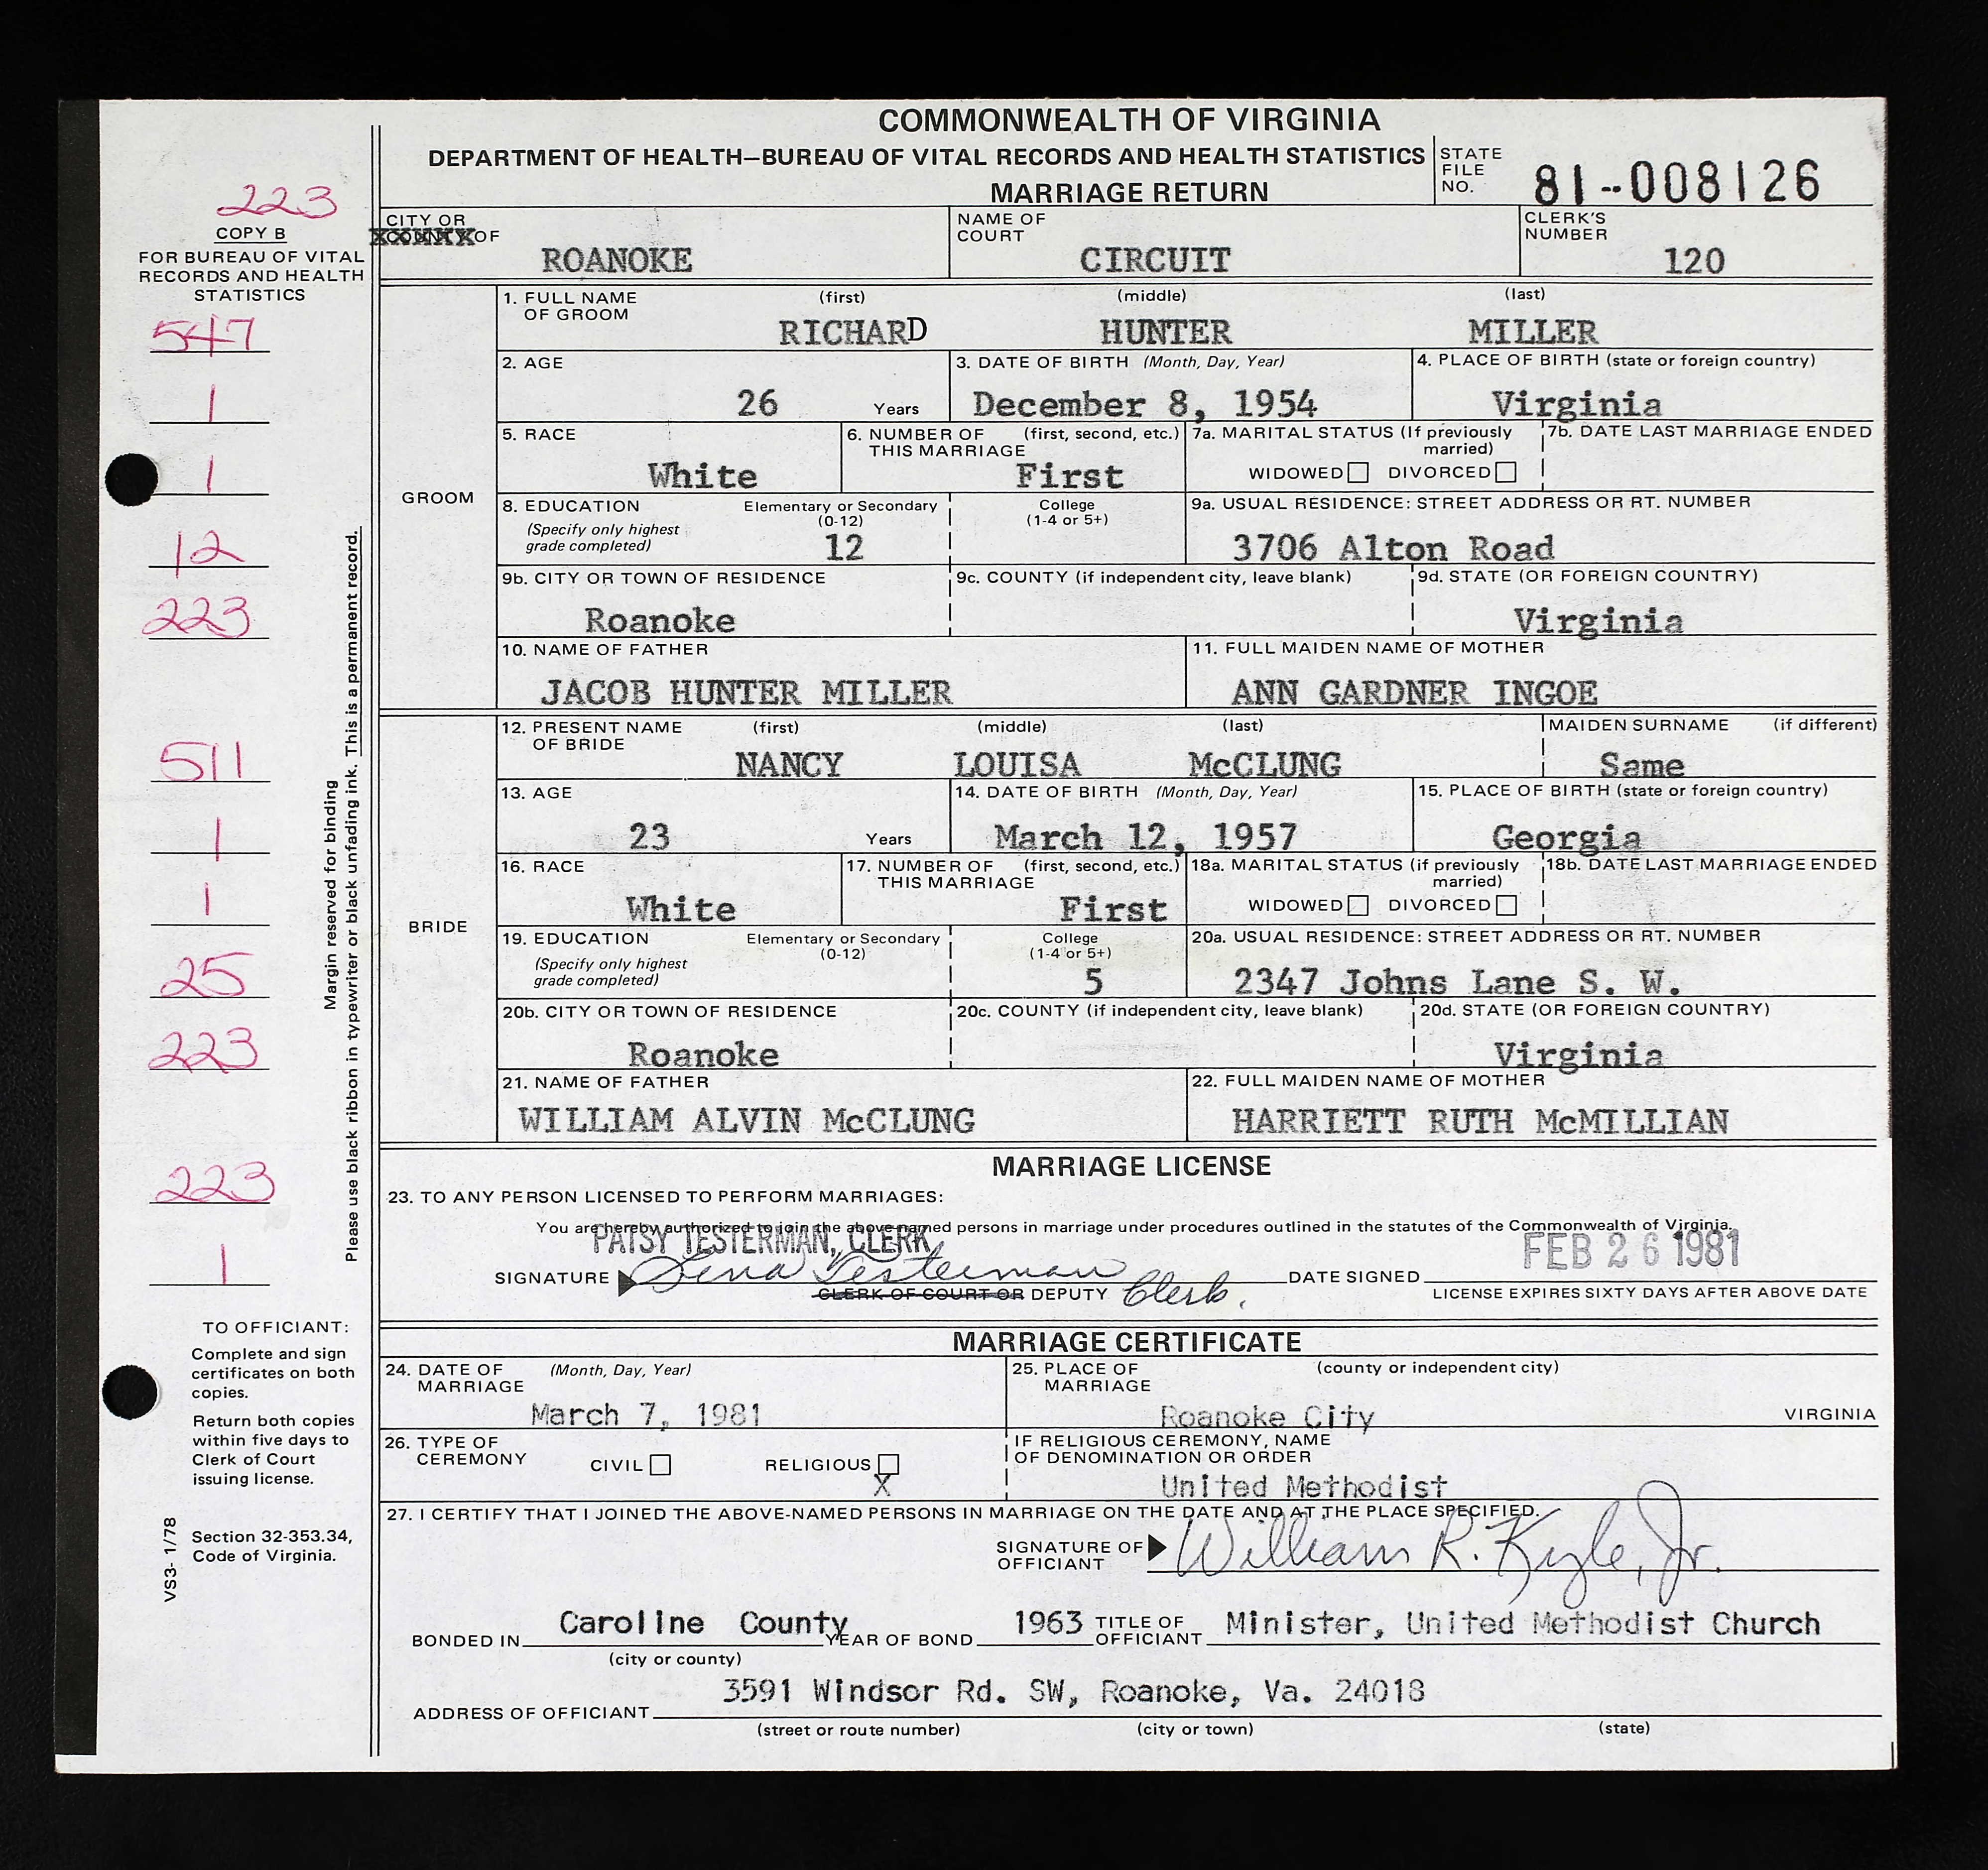 COMMONWEALTH OF VIRGINIA
DEPARTMENT OF HEALTH—BUREAU OF VITAL RECORDS AND HEALTH STATISTICS
MARRIAGE RETURN
STATE FILE NO. 81-008126
223
COPY B
FOR BUREAU OF VITAL
RECORDS AND HEALTH
STATISTICS
547
1
1
12
223
511
1
1
25
223
223
1
Margin reserved for binding
Please use black ribbon in typewriter or black unfading ink. This is a permanent record.
TO OFFICIANT:
Complete and sign
certificates on both
copies.
Return both copies
within five days to
Clerk of Court
issuing license.
Section 32-353.34,
Code of Virginia.
VS3- 1/78
CITY OR COUNTY OF ROANOKE
NAME OF COURT CIRCUIT
CLERK'S NUMBER 120
GROOM
1. FULL NAME OF GROOM (first) (middle) (last)
RICHARD HUNTER MILLER
2. AGE 26 Years
3. DATE OF BIRTH (Month, Day, Year) December 8, 1954
4. PLACE OF BIRTH (state or foreign country) Virginia
5. RACE White
6. NUMBER OF THIS MARRIAGE (first, second, etc.) First
7a. MARITAL STATUS (If previously married) WIDOWED DIVORCED
7b. DATE LAST MARRIAGE ENDED
8. EDUCATION (Specify only highest grade completed) Elementary or Secondary (0-12) 12 College (1-4 or 5+)
9a. USUAL RESIDENCE: STREET ADDRESS OR RT. NUMBER 3706 Alton Road
9b. CITY OR TOWN OF RESIDENCE Roanoke
9c. COUNTY (if independent city, leave blank)
9d. STATE (OR FOREIGN COUNTRY) Virginia
10. NAME OF FATHER JACOB HUNTER MILLER
11. FULL MAIDEN NAME OF MOTHER ANN GARDNER INGOE
BRIDE
12. PRESENT NAME OF BRIDE (first) (middle) (last) MAIDEN SURNAME (if different)
NANCY LOUISA McCLUNG Same
13. AGE 23 Years
14. DATE OF BIRTH (Month, Day, Year) March 12, 1957
15. PLACE OF BIRTH (state or foreign country) Georgia
16. RACE White
17. NUMBER OF THIS MARRIAGE (first, second, etc.) First
18a. MARITAL STATUS (if previously married) WIDOWED DIVORCED
18b. DATE LAST MARRIAGE ENDED
19. EDUCATION (Specify only highest grade completed) Elementary or Secondary (0-12) College (1-4 or 5+) 5
20a. USUAL RESIDENCE: STREET ADDRESS OR RT. NUMBER 2347 Johns Lane S. W.
20b. CITY OR TOWN OF RESIDENCE Roanoke
20c. COUNTY (if independent city, leave blank)
20d. STATE (OR FOREIGN COUNTRY) Virginia
21. NAME OF FATHER WILLIAM ALVIN McCLUNG
22. FULL MAIDEN NAME OF MOTHER HARRIETT RUTH McMILLIAN
MARRIAGE LICENSE
23. TO ANY PERSON LICENSED TO PERFORM MARRIAGES:
You are hereby authorized to join the above-named persons in marriage under procedures outlined in the statutes of the Commonwealth of Virginia.
PATSY TESTERMAN, CLERK
SIGNATURE Testerman DATE SIGNED FEB 26 1981
CLERK OF COURT OR DEPUTY Clerk.
LICENSE EXPIRES SIXTY DAYS AFTER ABOVE DATE
MARRIAGE CERTIFICATE
24. DATE OF MARRIAGE (Month, Day, Year) March 7, 1981
25. PLACE OF MARRIAGE (county or independent city) Roanoke City VIRGINIA
26. TYPE OF CEREMONY CIVIL RELIGIOUS X
IF RELIGIOUS CEREMONY, NAME OF DENOMINATION OR ORDER United Methodist
27. I CERTIFY THAT I JOINED THE ABOVE-NAMED PERSONS IN MARRIAGE ON THE DATE AND AT THE PLACE SPECIFIED.
SIGNATURE OF OFFICIANT William R. Kyle, Jr.
BONDED IN Caroline County YEAR OF BOND 1963 TITLE OF OFFICIANT Minister, United Methodist Church
(city or county)
ADDRESS OF OFFICIANT 3591 Windsor Rd. SW, Roanoke, Va. 24018
(street or route number) (city or town) (state)